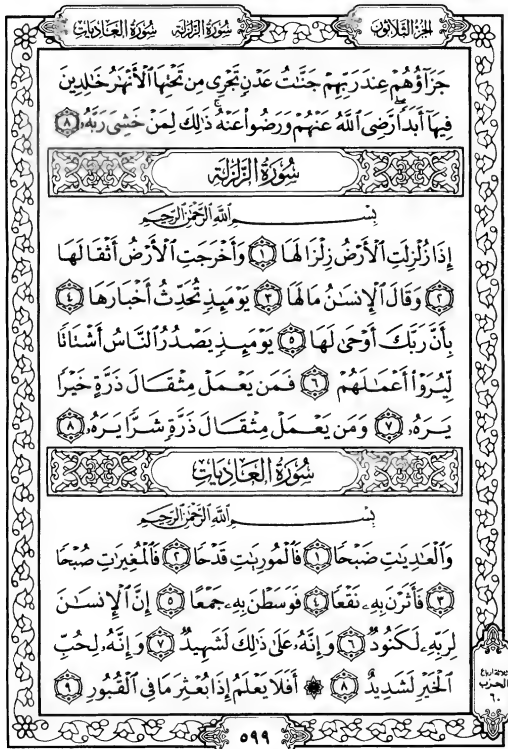 الجزء الثلاثون
سورة الزلزلة سورة العاديات
جَزَآؤُهُمْ عِندَ رَبِّهِمْ جَنَّٰتُ عَدْنٍ تَجْرِى مِن تَحْتِهَا ٱلْأَنْهَٰرُ خَٰلِدِينَ
فِيهَآ أَبَدًا رَّضِىَ ٱللَّهُ عَنْهُمْ وَرَضُوا۟ عَنْهُ ذَٰلِكَ لِمَنْ خَشِىَ رَبَّهُۥ ٨
سُورَةُ الزَّلْزَلَةِ
بِسْمِ ٱللَّهِ ٱلرَّحْمَٰنِ ٱلرَّحِيمِ
إِذَا زُلْزِلَتِ ٱلْأَرْضُ زِلْزَالَهَا ١ وَأَخْرَجَتِ ٱلْأَرْضُ أَثْقَالَهَا
٢ وَقَالَ ٱلْإِنسَٰنُ مَا لَهَا ٣ يَوْمَئِذٍ تُحَدِّثُ أَخْبَارَهَا ٤
بِأَنَّ رَبَّكَ أَوْحَىٰ لَهَا ٥ يَوْمَئِذٍ يَصْدُرُ ٱلنَّاسُ أَشْتَاتًا
لِّيُرَوْا۟ أَعْمَٰلَهُمْ ٦ فَمَن يَعْمَلْ مِثْقَالَ ذَرَّةٍ خَيْرًا
يَرَهُۥ ٧ وَمَن يَعْمَلْ مِثْقَالَ ذَرَّةٍ شَرًّا يَرَهُۥ ٨
سُورَةُ العَادِيَاتِ
بِسْمِ ٱللَّهِ ٱلرَّحْمَٰنِ ٱلرَّحِيمِ
وَٱلْعَٰدِيَٰتِ ضَبْحًا ١ فَٱلْمُورِيَٰتِ قَدْحًا ٢ فَٱلْمُغِيرَٰتِ صُبْحًا
٣ فَأَثَرْنَ بِهِۦ نَقْعًا ٤ فَوَسَطْنَ بِهِۦ جَمْعًا ٥ إِنَّ ٱلْإِنسَٰنَ
لِرَبِّهِۦ لَكَنُودٌ ٦ وَإِنَّهُۥ عَلَىٰ ذَٰلِكَ لَشَهِيدٌ ٧ وَإِنَّهُۥ لِحُبِّ
ٱلْخَيْرِ لَشَدِيدٌ ٨ ۞ أَفَلَا يَعْلَمُ إِذَا بُعْثِرَ مَا فِى ٱلْقُبُورِ ٩
ثلاثة أرباع
الحزب
٦٠
٥٩٩